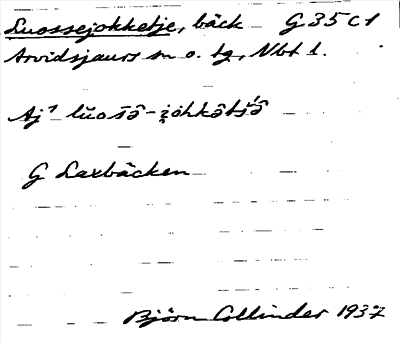 Luossejokketje, bäck G 35 c 1
Arvidsjaurs sn o. tg, Nbt l.
Aj¹ lŭossē-johkåtjå
G Laxbäcken
Björn Collinder 1937